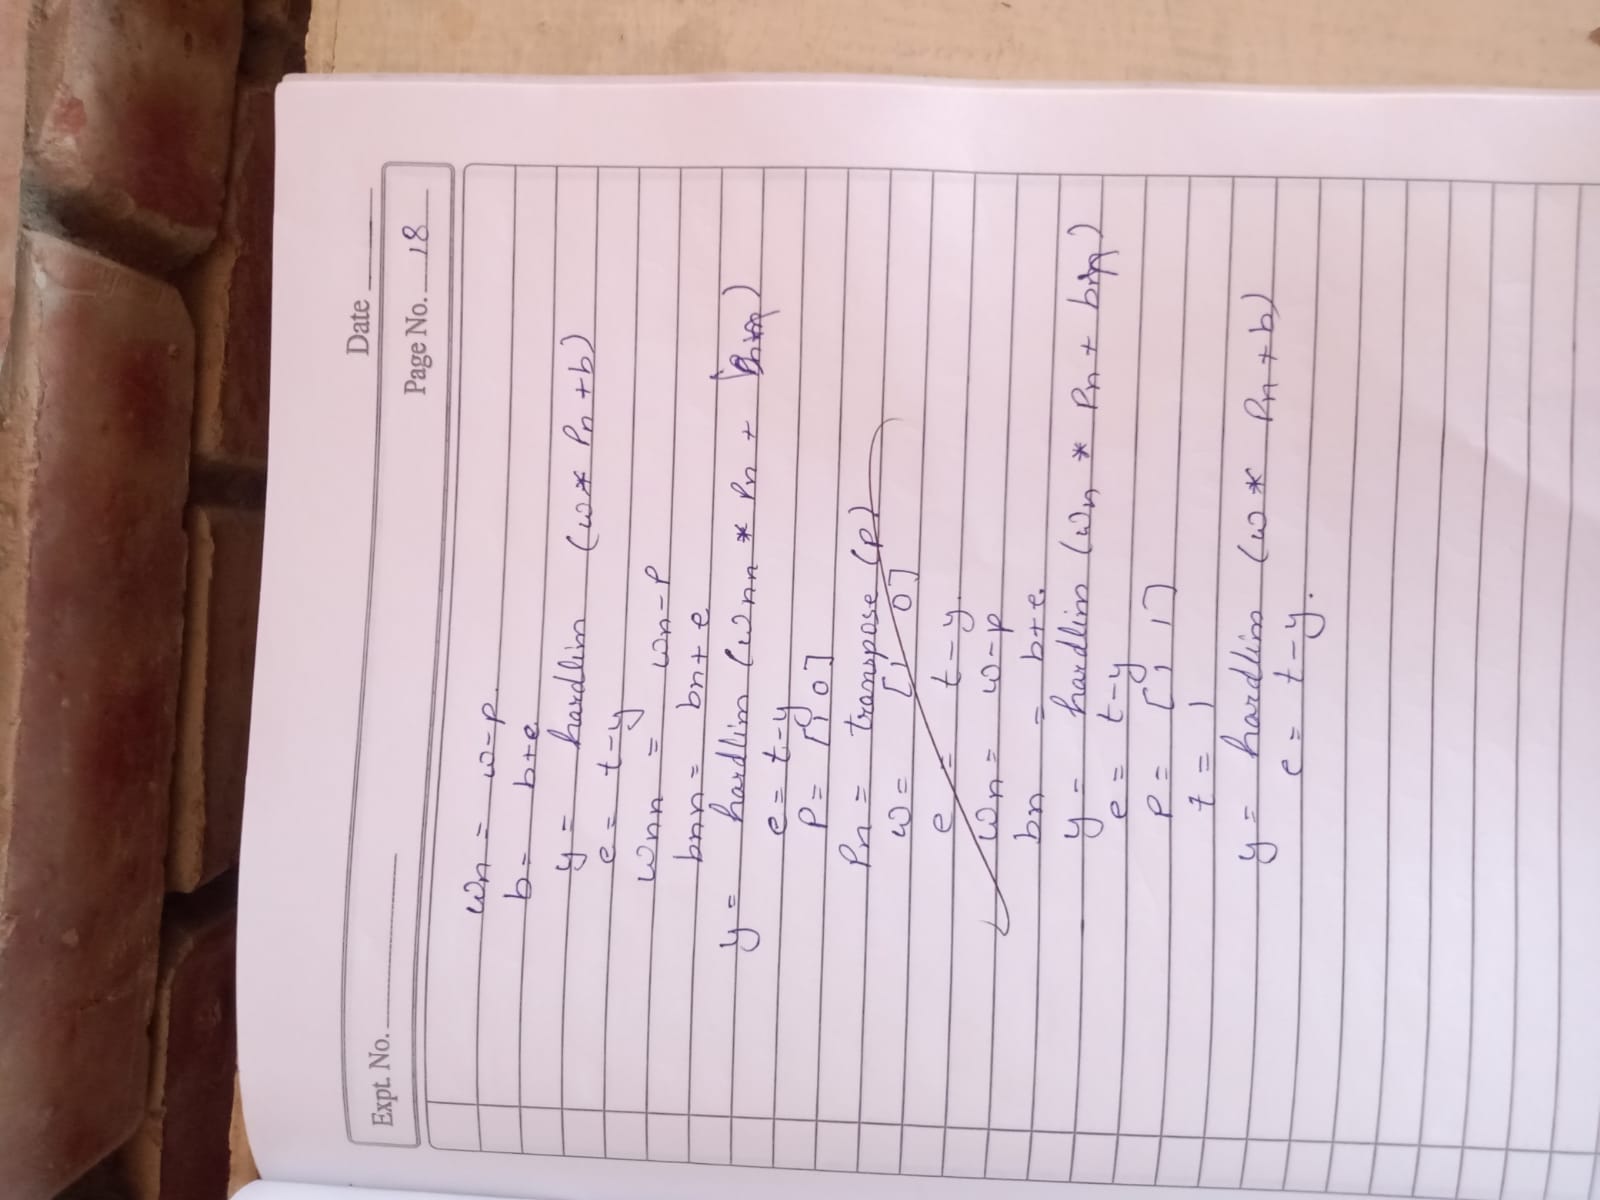 Expt. No. Date
Page No. 18
wn = w-p.
b = b+e.
y = hardlim (w* Pn +b)
e = t-y
wnn = wn-p
bnn = bn+e
y = hardlim (wnn * Pn +
e = t-y
P = [1 0]
Pn = transpose (p)
w = [1 0]
e = t-y.
wn = w-p
bn = b+e.
y = hardlim (wn * Pn + bn)
e = t-y
P = [1 1]
t = 1
y = hardlim (w* Pn +b)
e = t-y.